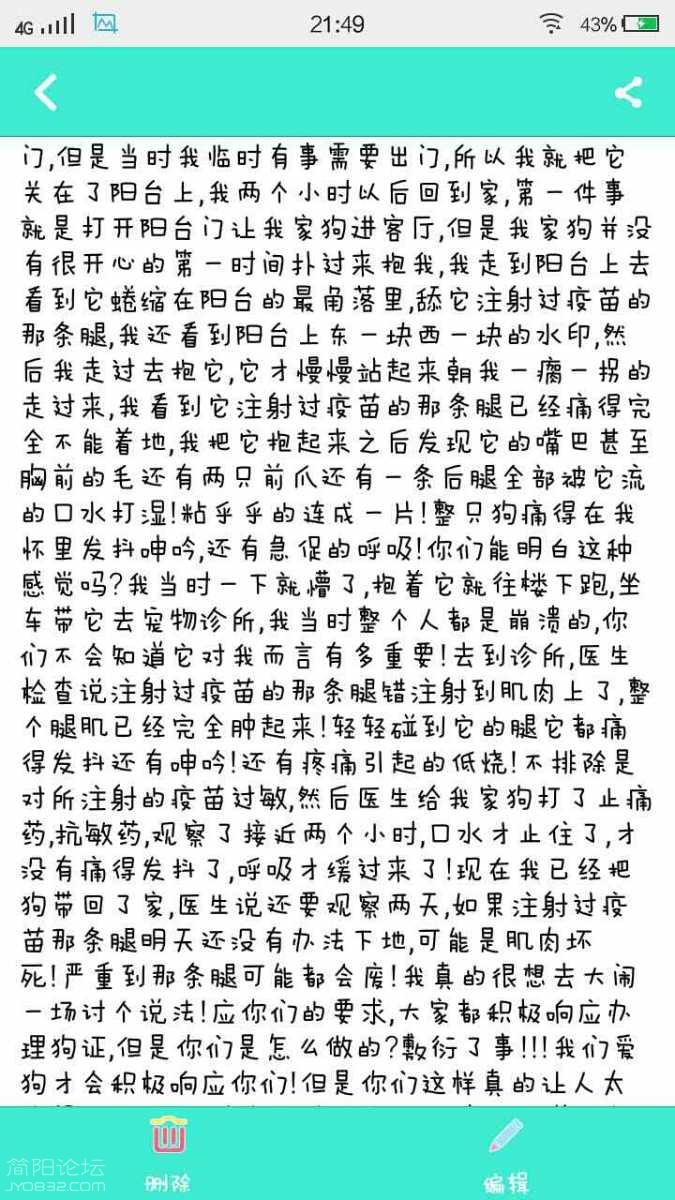 4G
21:49
43%
门,但是当时我临时有事需要出门,所以我就把它
关在了阳台上,我两个小时以后回到家,第一件事
就是打开阳台门让我家狗进客厅,但是我家狗并没
有很开心的第一时间扑过来抱我,我走到阳台上去
看到它蜷缩在阳台的最角落里,舔它注射过疫苗的
那条腿,我还看到阳台上东一块西一块的水印,然
后我走过去抱它,它才慢慢站起来朝我一瘸一拐的
走过来,我看到它注射过疫苗的那条腿已经痛得完
全不能着地,我把它抱起来之后发现它的嘴巴甚至
胸前的毛还有两只前爪还有一条后腿全部被它流
的口水打湿!粘乎乎的连成一片!整只狗痛得在我
怀里发抖呻吟,还有急促的呼吸!你们能明白这种
感觉吗?我当时一下就懵了,抱着它就往楼下跑,坐
车带它去宠物诊所,我当时整个人都是崩溃的,你
们不会知道它对我而言有多重要!去到诊所,医生
检查说注射过疫苗的那条腿错注射到肌肉上了,整
个腿肌已经完全肿起来!轻轻碰到它的腿它都痛
得发抖还有呻吟!还有疼痛引起的低烧!不排除是
对所注射的疫苗过敏,然后医生给我家狗打了止痛
药,抗敏药,观察了接近两个小时,口水才止住了,才
没有痛得发抖了,呼吸才缓过来了!现在我已经把
狗带回了家,医生说还要观察两天,如果注射过疫
苗那条腿明天还没有办法下地,可能是肌肉坏
死!严重到那条腿可能都会废!我真的很想去大闹
一场讨个说法!应你们的要求,大家都积极响应办
理狗证,但是你们是怎么做的?敷衍了事!!!我们爱
狗才会积极响应你们!但是你们这样真的让人太
删除
编辑
简阳论坛
JY0832.com